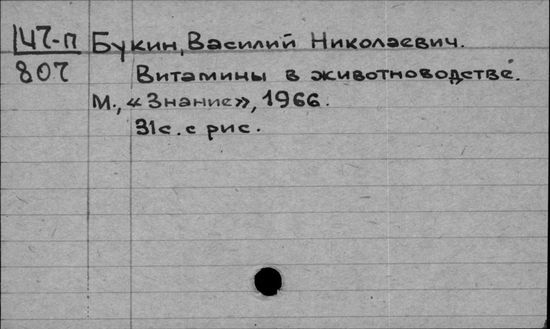 147-п Букин, Василий Николаевич.
807 Витамины в животноводстве.
М., «Знание», 1966.
31с. с рис.